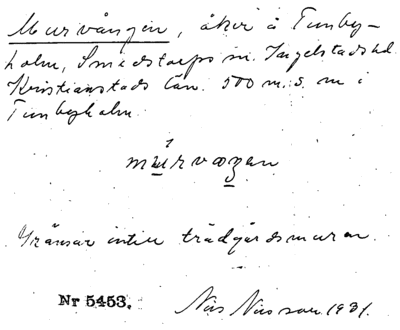 Murvången, åker å Tunby-
holm, Smedstorps sn. Ingelstads hd.
Kristianstads län. 500 m. s. m i
Tunbyholm.
mu̱rvaꬼan
Gränsar intill trädgårdsmuren.
Nr 5453. Nils Nilsson 1931.